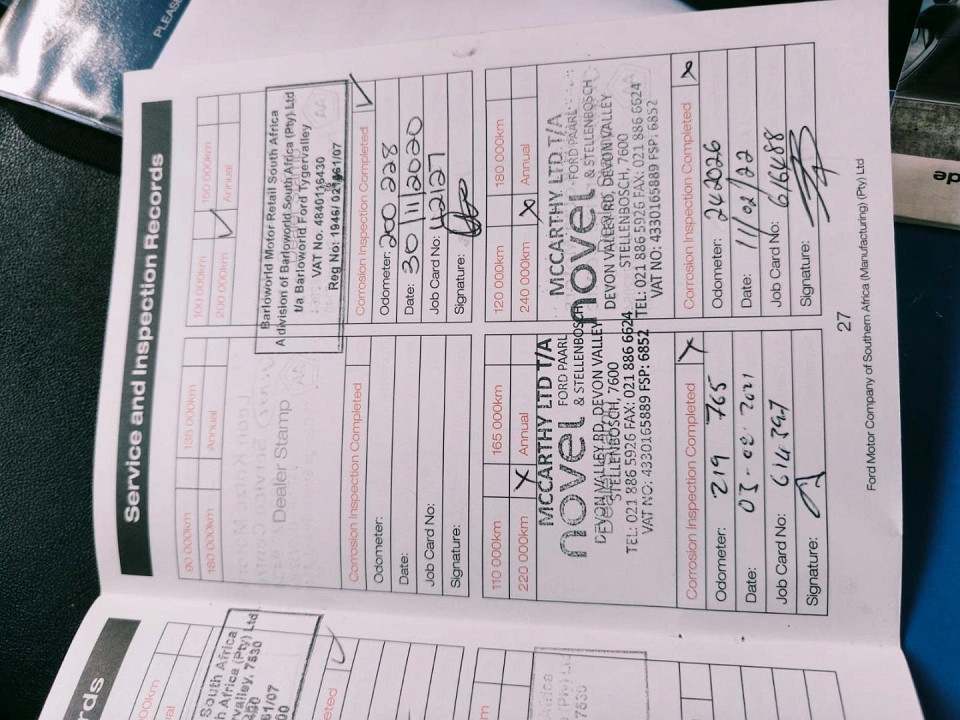 Service and Inspection Records
90 000km
135 000km
180 000km
Annual
Dealer Stamp
Corrosion Inspection Completed
Odometer:
Date:
Job Card No:
Signature:
100 000km
150 000km
200 000km
Annual
Barloworld Motor Retail South Africa
A division of Barloworld South Africa (Pty) Ltd
t/a Barloworld Ford Tygervalley
VAT No. 4840116430
Reg No: 1946/021661/07
Corrosion Inspection Completed
Odometer: 200 228
Date: 30/11/2020
Job Card No: 42127
Signature:
110 000km
165 000km
220 000km
Annual
MCCARTHY LTD T/A
novel FORD PAARL
& STELLENBOSCH
DEVON VALLEY RD, DEVON VALLEY
STELLENBOSCH, 7600
TEL: 021 886 5926 FAX: 021 886 6624
VAT NO: 4330165889 FSP: 6852
Corrosion Inspection Completed
Odometer: 219 765
Date:
Job Card No:
Signature:
120 000km
180 000km
240 000km
Annual
MCCARTHY LTD T/A
novel FORD PAARL
& STELLENBOSCH
DEVON VALLEY RD, DEVON VALLEY
STELLENBOSCH, 7600
TEL: 021 886 5926 FAX: 021 886 6624
VAT NO: 4330165889 FSP: 6852
Corrosion Inspection Completed
Odometer: 242026
Date: 11/02/22
Job Card No: 616488
Signature:
27
Ford Motor Company of Southern Africa (Manufacturing) (Pty) Ltd